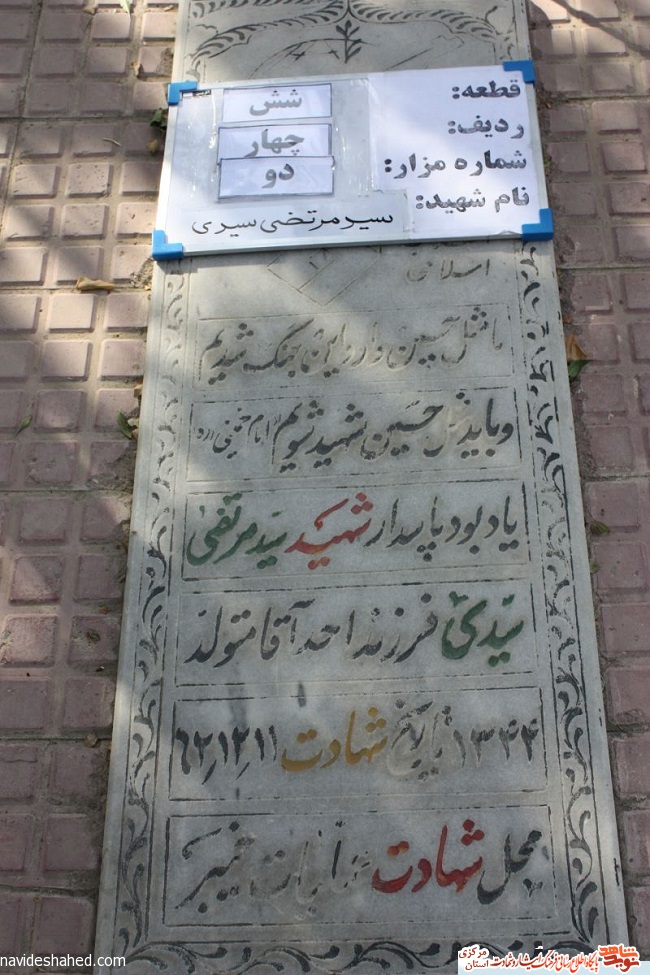 قطعه: شش
ردیف: چهار
شماره مزار: دو
نام شهید: سید مرتضی سیدی
اسلامی
ما مثل حسین وارد این جنگ شدیم
و باید مثل حسین شهید شویم «امام خمینی ره»
یاد بود پاسدار شهید سید مرتضی
سیدی فرزند احد آقا متولد
۱۳۴۴ تاریخ شهادت ۶۲٫۱۲٫۱۱
محل شهادت خیبر
navideshahed.com
شاهد
پایگاه اطلاع رسانی فرهنگ ایثار و شهادت
استان مرکزی